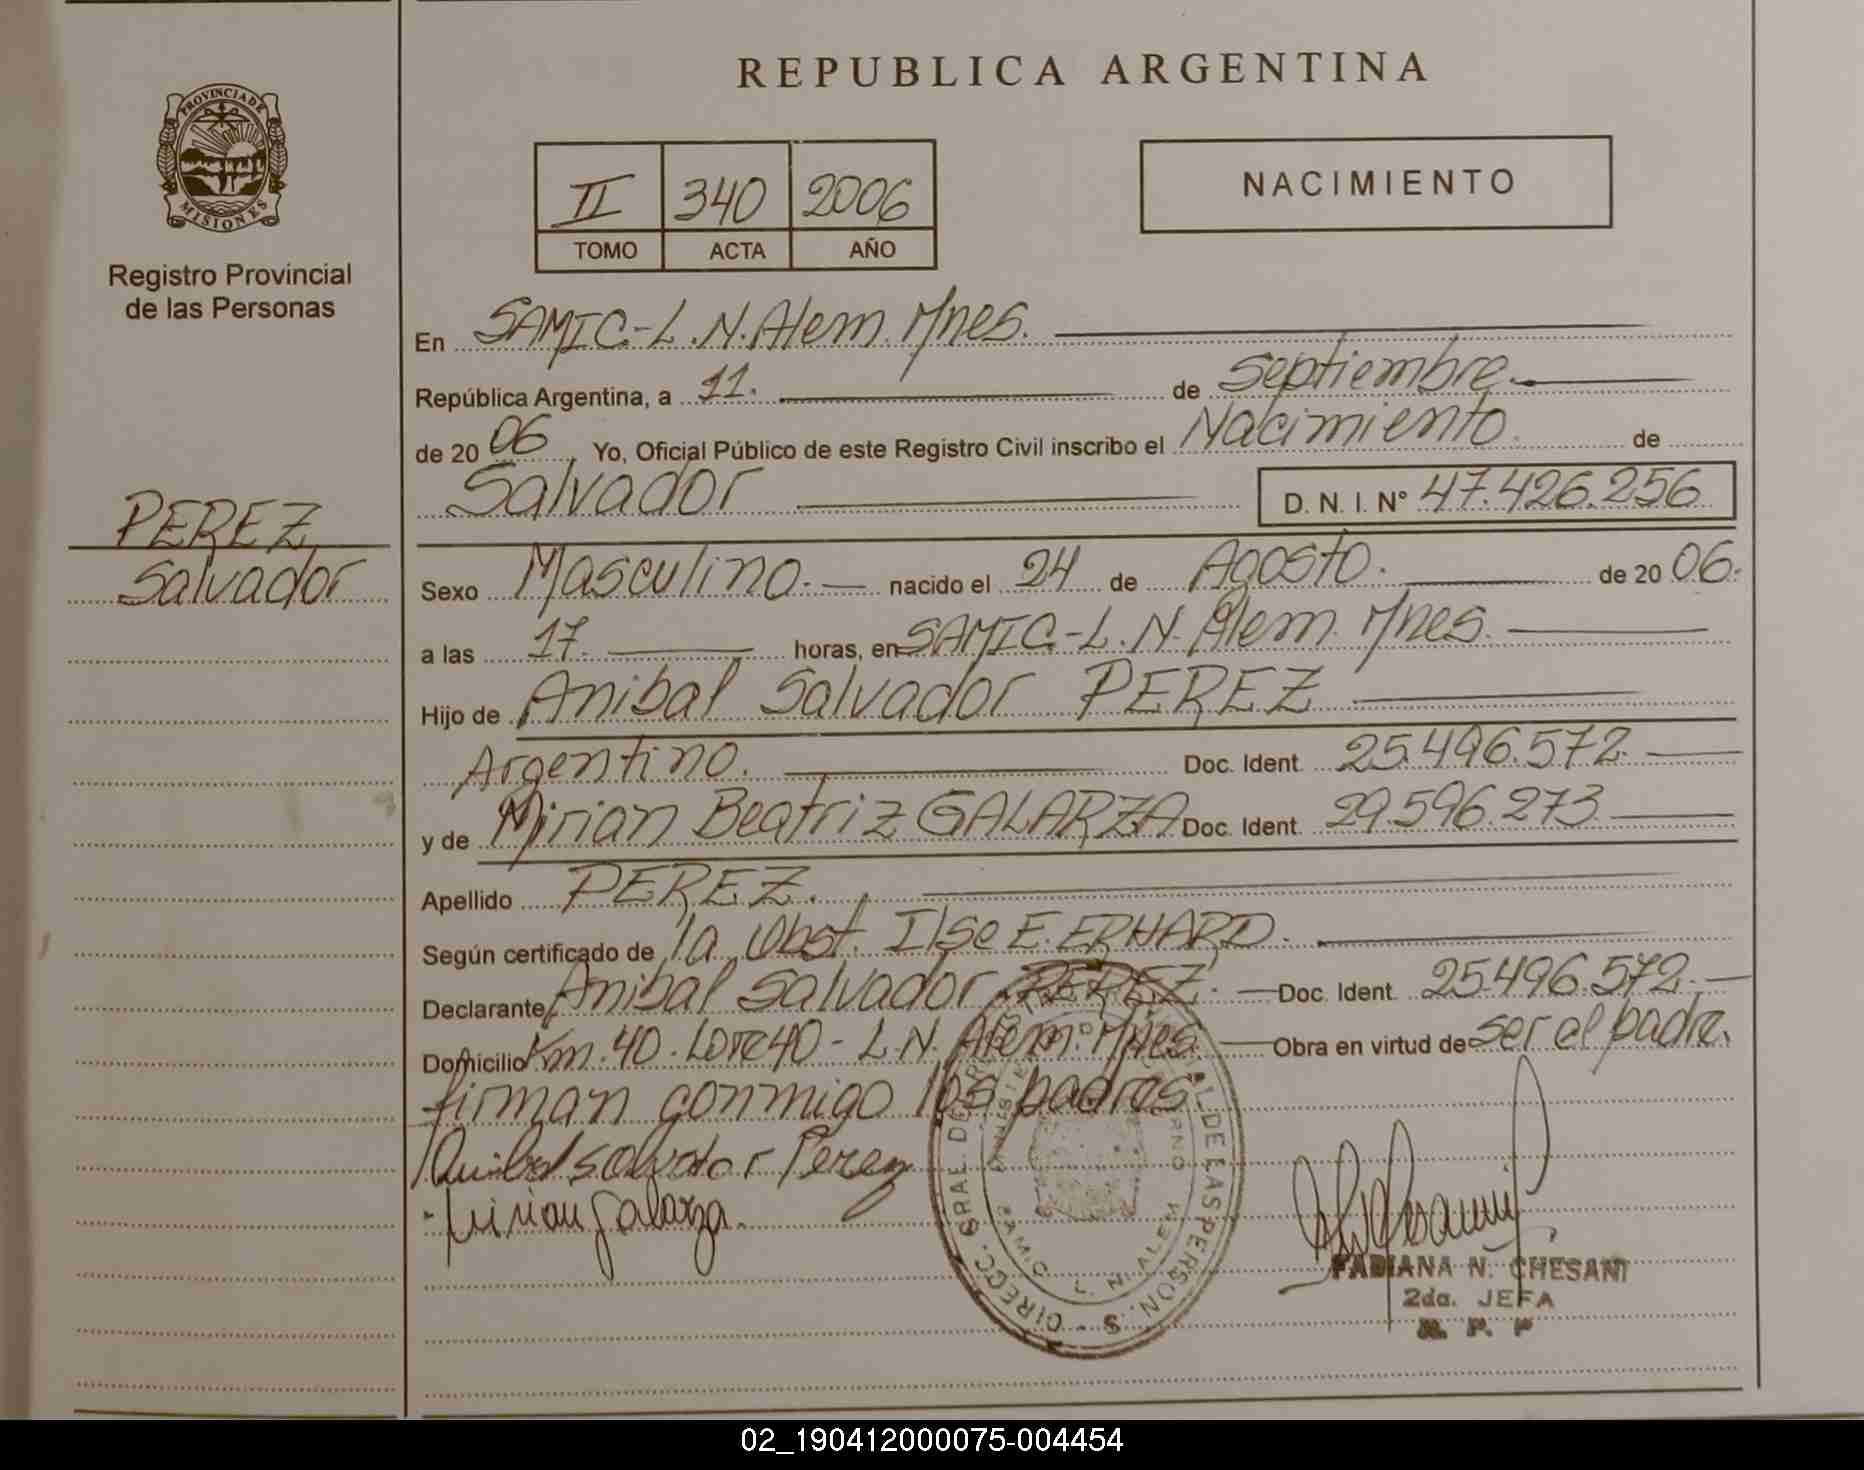 REPUBLICA ARGENTINA
PROVINCIA DE
MISIONES
Registro Provincial
de las Personas
II 340 2006
TOMO ACTA AÑO
NACIMIENTO
En SAMIC-L.N.Alem. Mnes.
República Argentina, a 11. de septiembre.
de 20 06 Yo, Oficial Público de este Registro Civil inscribo el Nacimiento. de
Salvador D. N. I. N° 47.426.256
PEREZ
Salvador
Sexo Masculino. nacido el 24 de Agosto. de 20 06.
a las 17. horas, en SAMIC-L.N. Alem. Mnes.
Hijo de Anibal Salvador PEREZ
Argentino. Doc. Ident. 25.496.572
y de Mirian Beatriz GALARZA Doc. Ident. 29.596.273
Apellido PEREZ.
Según certificado de la Obst. Ilse E. ERHARD.
Declarante Anibal Salvador PEREZ. Doc. Ident. 25.496.572.
Domicilio Km. 40. Lote 40 - L.N. Alem. Mnes. Obra en virtud de ser el padre.
firman conmigo los padres.
Anibal Salvador Perez
Mirian Galarza.
SAMIC L. N. ALEM
FABIANA N. CHESANI
2da. JEFA
R. P. P
02_190412000075-004454